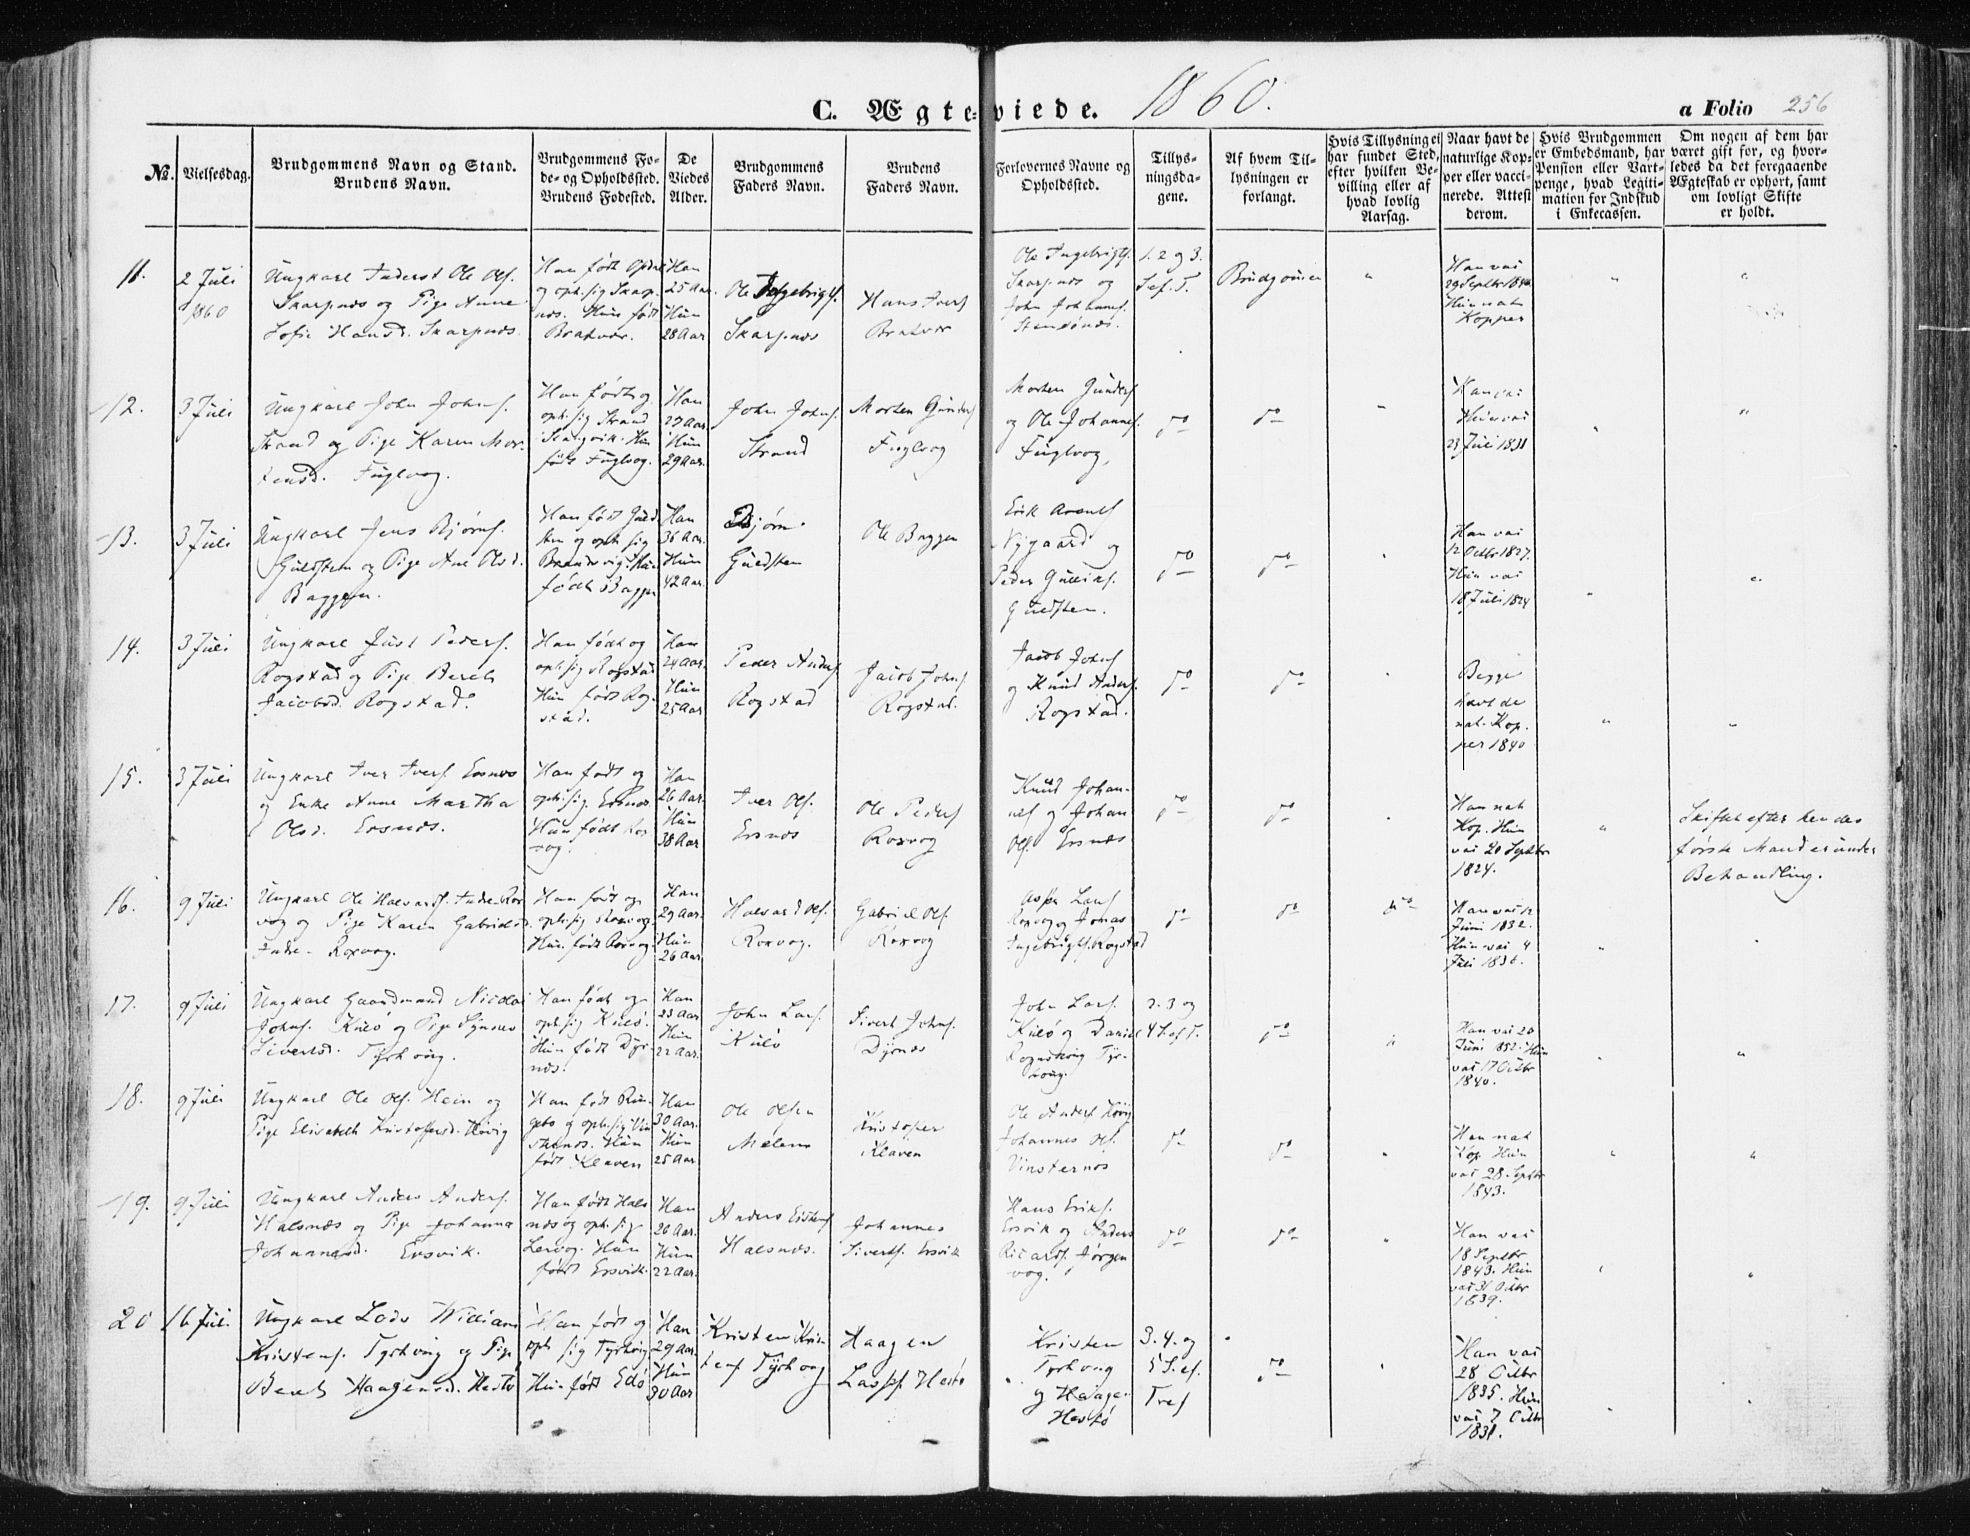 C. Ægteviede. 1860.
a Folio 256
№.
Vielsesdag.
Brudgommens Navn og Stand.
Brudens Navn.
Brudgommens Fø-
de- og Opholdssted.
Brudens Fødested.
De
Viedes
Alder.
Brudgommens
Faders Navn.
Brudens
Faders Navn.
Forlovernes Navne og
Opholdssted.
Tillys-
ningsda-
gene.
Af hvem Til-
lysningen er
forlangt.
Hvis Tillysning ei
har fundet Sted,
efter hvilken Be-
villing eller af
hvad lovlig
Aarsag.
Naar havt de
naturlige Kop-
per eller vacci-
nerede. Attest
derom.
Hvis Brudgommen
er Embedsmand, har
Pension eller Vart-
penge, hvad Legiti-
mation for Indskud
i Enkecassen.
Om nogen af dem har
været gift før, og hvor-
ledes da det foregaaende
Ægteskab er ophørt, samt
om lovligt Skifte
er holdt.
11.
2 Juli
1860
Ungkarl Inderst Ole Ols.
Skarpnæs og Pige Anne
Sofie Hansd. Skarpnæs.
Han født Opdal
og oph. sig Skarp-
næs. Hun født
Bratvær.
Han
25 Aar.
Hun
28 Aar.
Ole Ingebrigts.
Skarpnæs
Hans Ivers
Bratvær
Ole Ingebrigts.
Skarpnæs og
John Johans.
1. 2 og 3.
S. ef. T.
Brudgomen
"
Han vac
29 Septbr
Hun nat
Kopper
"
"
12.
3 Juli
Ungkarl John Johns.
Strand og Pige Karen Mor-
tensd. Fuglvog.
Han født og
oph. sig Strand
Hun
født Fuglvog.
Han
27 Aar.
Hun
29 Aar.
John Johns.
Strand
Morten Gunders
Fuglvog
Morten Gunders
og Ole Johannes.
Fuglvog,
do
do
"
Han vac
Hun vac
23 Juli 1831
"
"
13.
3 Juli
Ungkarl Jens Bjørns.
Guldsten og Pige Ane Olsd.
Baggen.
Han født Guld-
sten og oph. sig
Brandsvig. Hun
født Baggen
Han
36 Aar.
Hun
42 Aar.
Bjørn
Guldsten
Ole Baggen
Erik Arents
Nygaard og
Peder Gulliks.
Guldsten.
do
do
"
Han vac
12 Octbr 1827.
Hun vac
18 Juli 1824
"
"
14.
3 Juli
Ungkarl Just Peders.
Rogstad og Pige Bereth
Jacobsd. Rogstad.
Han født og
oph. sig Rogstad
Hun født Rog-
stad.
Han
24 Aar.
Hun
25 Aar
Peder Anders
Rogstad
Jacob Johns
Rogstad.
Jacob Johns
og Knud Anders.
Rogstad.
do
do
"
Begge
havt de
nat. Kop-
per 1840
"
"
15.
3 Juli
Ungkarl Iver Ivers. Ersnæs
og Enke Anne Martha
Olsd. Ersnæs.
Han født og
oph. sig Ersnæs
Hun født Rox-
vog.
Han
26 Aar.
Hun
38 Aar
Iver Ols.
Ersnæs
Ole Peders
Roxvog
Knud Johan-
nes og Johan
Ols. Ersnæs
do
do
"
Han nat
Kop. Hun
vac 20 Septbr
1824.
"
Skiftet efter hendes
første Mand er under
Behandling.
16.
9 Juli
Ungkarl Ole Halvards. Indre Rox-
vog og Pige Karen Gabrielsd.
Indre- Roxvog.
Han født og
oph. sig Roxvog.
Hun født Roxvog.
Han
29 Aar.
Hun
26 Aar.
Halvard Ols.
Roxvog.
Gabriel Ols.
Roxvog
Asper Lars
Roxvog og Jonas
Ingebrigts. Rogstad
do
do
do
Han vac 12
Juni 1832.
Hun vac 4
Juli 1836.
"
"
17.
9 Juli
Ungkarl Gaardmand Nicolai
Johns. Kulø og Pige Synnev
Sivertsd. Tyrhoug.
Han født og
oph. sig Kulø.
Hun født Dyr-
næs.
Han
23 Aar
Hun
22 Aar.
John Lars.
Kulø
Sivert Johns.
Dyrnæs
John Lars.
Kulø og Daniel
Tyr-
houg.
2. 3 og
4 S. ef T.
do
"
Han vac 20
Juni 1852. Hun
vac 17 Octbr
1840.
"
"
18.
9 Juli
Ungkarl Ole Ols. Hein og
Pige Elisabeth Kristoffersd. Høvig
Han født Rin-
gebo og oph. sig Vin-
sternæs. Hun
født Klaven
Han
30 Aar.
Hun
25 Aar.
Ole Olsen
Melem
Kristofer
Klaven
Ole Anders Høvig
Johannes Ols.
Vinsternæs
do
do
"
Han nat
Kop. Hun
vac 28 Septbr
1843.
"
"
19.
9 Juli
Ungkarl Anders Anders.
Halsnæs og Pige Johanna
Johannesd. Ersvik.
Han født Hals-
næs og oph. sig
Lervog. Hun
født Ersvik.
Han
26 Aar.
Hun
22 Aar.
Anders
Halsnæs.
Johannes
Siverts. Ersvik
Hans Eriks.
Ersvik og Anders
Ricards. Jørgen-
vog.
do
do
"
Han vac
18 Septbr
1843. Hun
vac 31 Octbr
1839.
"
"
20
16 Juli
Ungkarl Lods William
Kristens. Tyrhoug og Pige
Bereth Haagensd. Hestø
Han født og
oph. sig Tyrhoug
Hun født Edø
Han
29 Aar.
Hun
30 Aar
Kristen Kris-
tens Tyrhoug
Haagen
Hestø
Kristen
Tyrhoug
og Haagen
Hestø
3. 4. og
5 S. ef.
Tref
do
"
Han vac
28 Octbr
1835. Hun
vac 7 Octbr
1831.
"
"